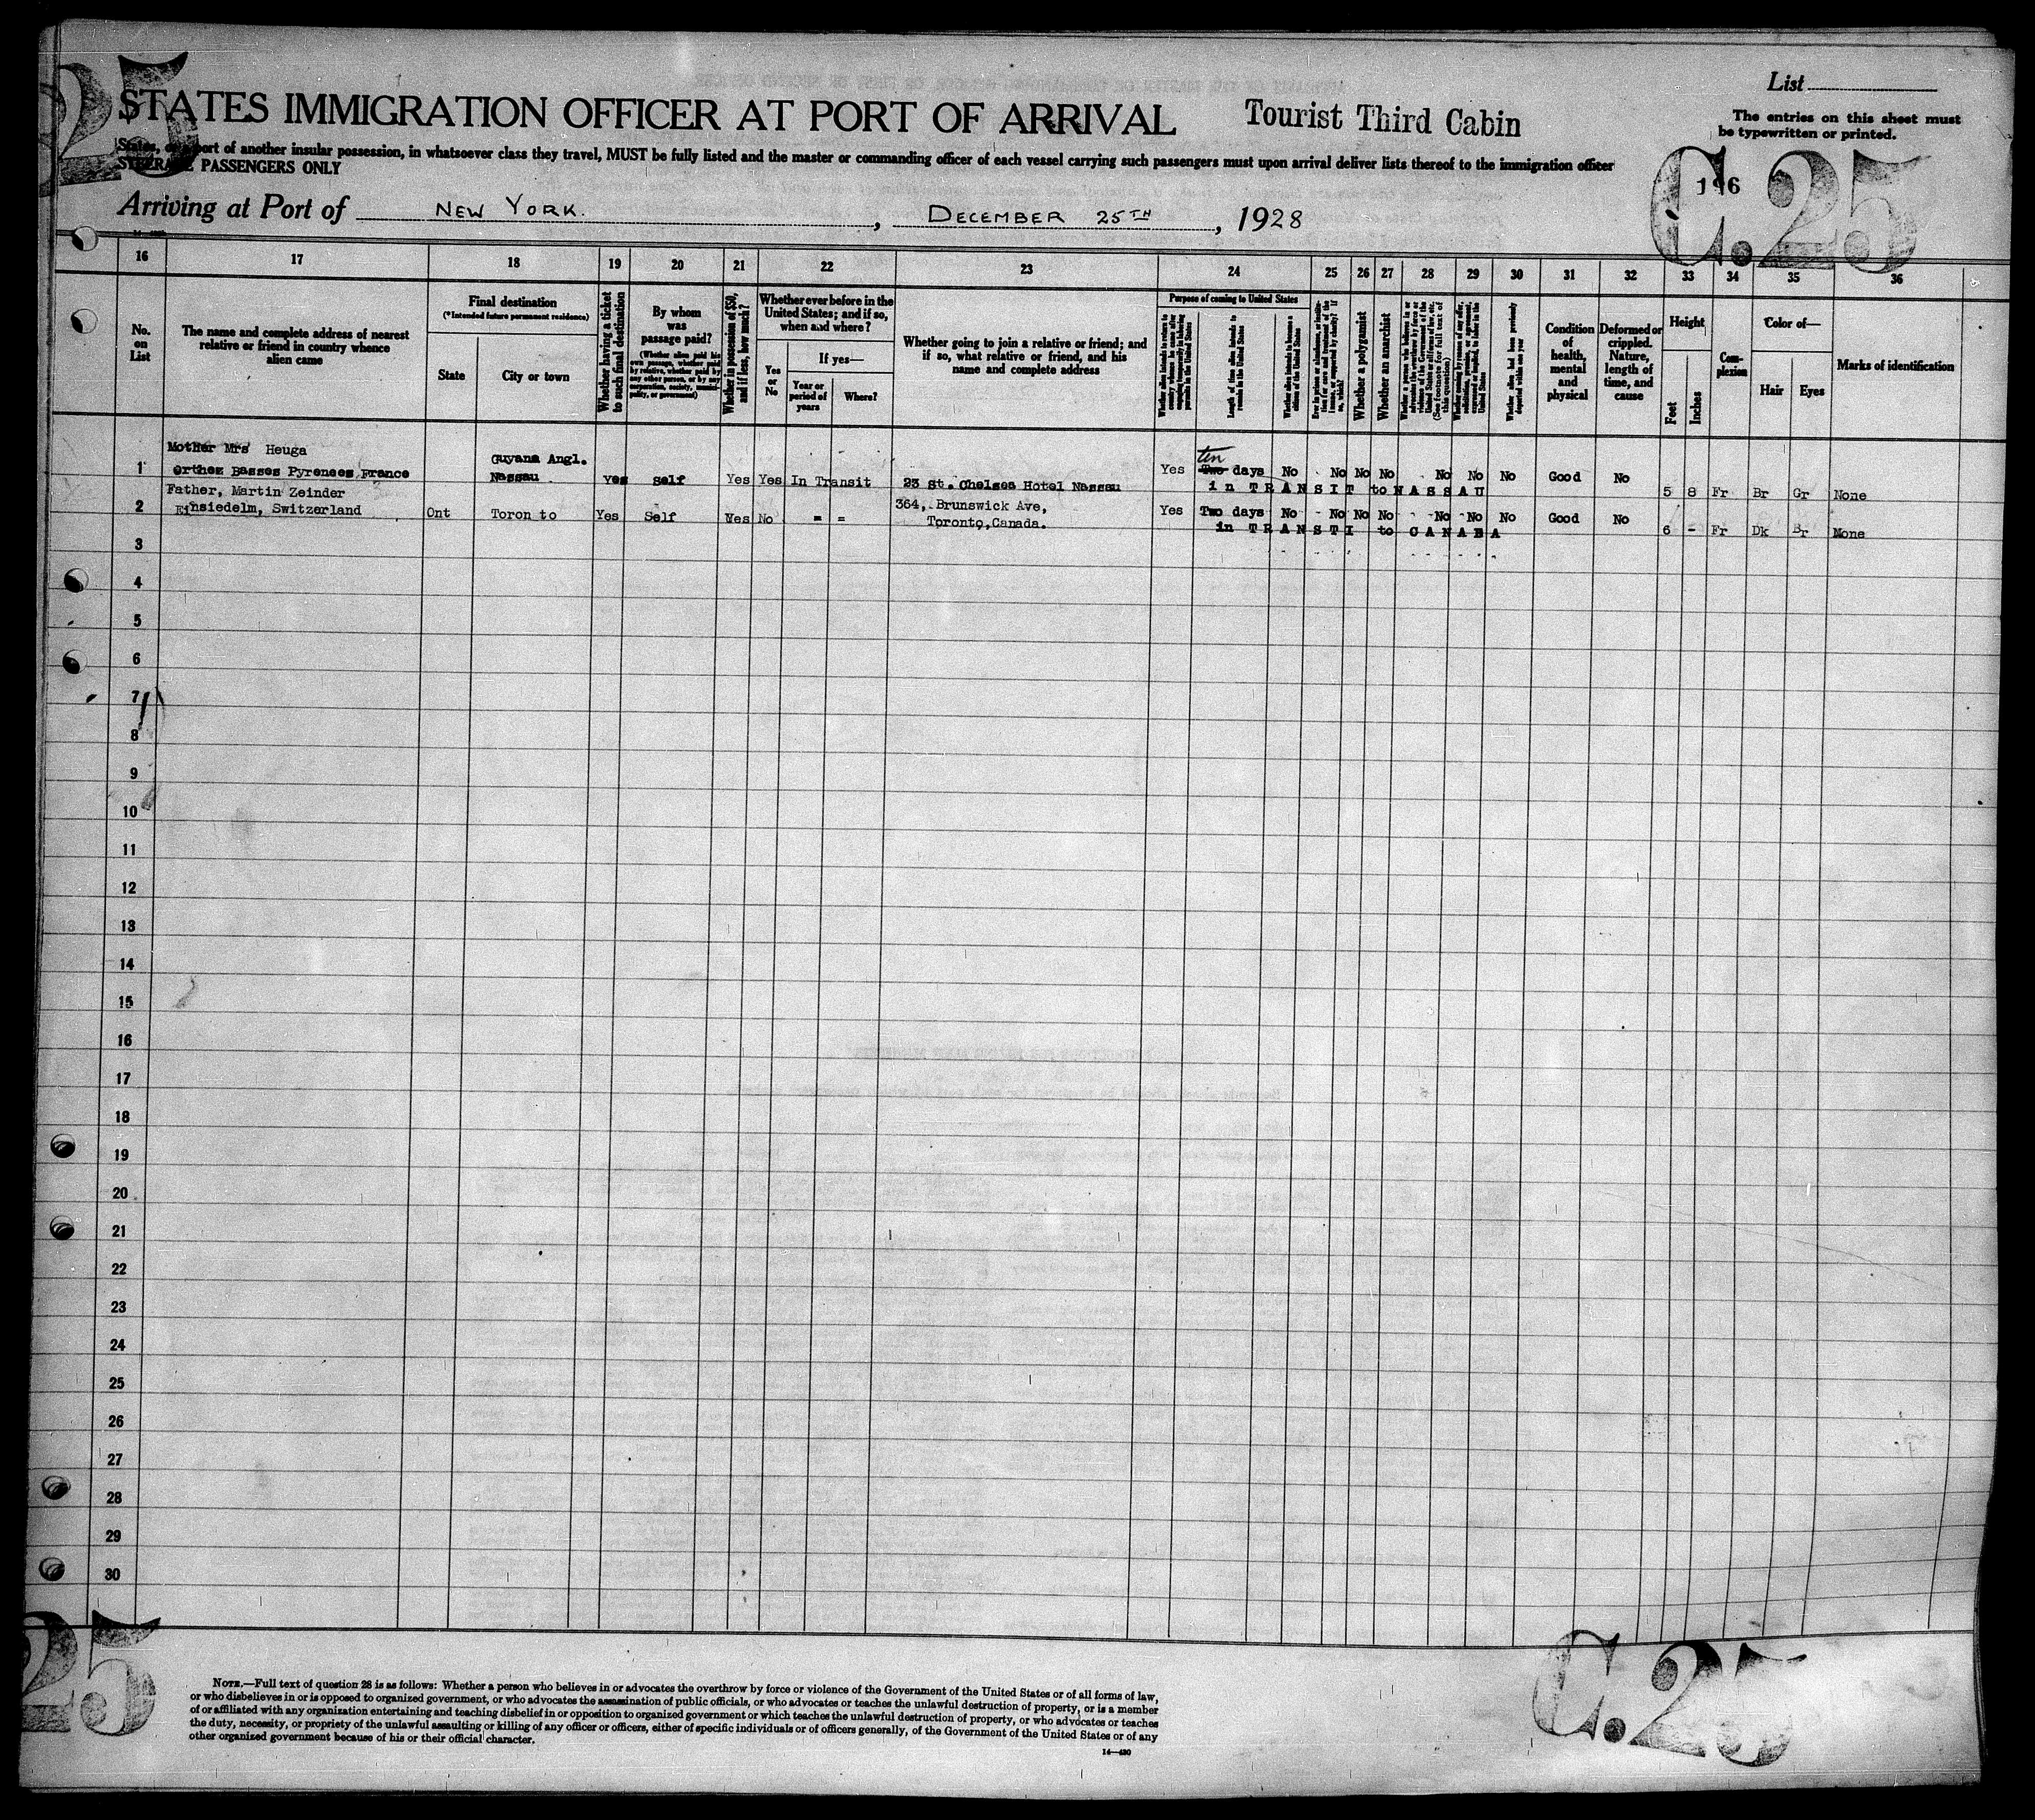 25
List
STATES IMMIGRATION OFFICER AT PORT OF ARRIVAL
Tourist Third Cabin
The entries on this sheet must
be typewritten or printed.
States, or a port of another insular possession, in whatsoever class they travel, MUST be fully listed and the master or commanding officer of each vessel carrying such passengers must upon arrival deliver lists thereof to the immigration officer
STEERAGE PASSENGERS ONLY
C.25
Arriving at Port of NEW YORK. , DECEMBER 25TH , 1928
16 17 18 19 20 21 22 23 24 25 26 27 28 29 30 31 32 33 34 35 36
No.
on
List
The name and complete address of nearest
relative or friend in country whence
alien came
Final destination
(*Intended future permanent residence)
State
City or town
Whether having a ticket
to such final destination
By whom
was
passage paid?
(Whether alien paid his
own passage, whether paid
by relative, whether paid by
any other person, or by any
corporation, society, munici-
pality, or government)
Whether in possession of $50,
and if less, how much?
Whether ever before in the
United States; and if so,
when and where?
Yes
or
No
If yes—
Year or
period of
years
Where?
Whether going to join a relative or friend; and
if so, what relative or friend, and his
name and complete address
Purpose of coming to United States
Length of time alien intends to
remain in the United States
Whether alien intends to become a
citizen of the United States
Whether a polygamist
Whether an anarchist
Whether alien had been previously
deported within one year
Condition
of
health,
mental
and
physical
Deformed or
crippled.
Nature,
length of
time, and
cause
Height
Feet
Inches
Com-
plexion
Color of—
Hair
Eyes
Marks of identification
1
Mother Mrs Heuga
Orthez Basses Pyrenees France
Guyana Angl.
Nassau
Yes Self Yes Yes In Transit
23 St. Chelsea Hotel Nassau
Yes ten Two days No No No No No No No Good No
in TRANSIT to NASSAU
5 8 Fr Br Gr None
2
Father, Martin Zeinder
Einsiedelm, Switzerland
Ont Toronto Yes Self Yes No = =
364, Brunswick Ave,
Toronto, Canada.
Yes Two days No No No No No No No Good No
in TRANSTI to CANABA
6 - Fr Dk Br None
3
4
5
6
7
8
9
10
11
12
13
14
15
16
17
18
19
20
21
22
23
24
25
26
27
28
29
30
25
C.25
NOTE.—Full text of question 28 is as follows: Whether a person who believes in or advocates the overthrow by force or violence of the Government of the United States or of all forms of law,
or who disbelieves in or is opposed to organized government, or who advocates the assassination of public officials, or who advocates or teaches the unlawful destruction of property, or is a member
of or affiliated with any organization entertaining and teaching disbelief in or opposition to organized government or which teaches the unlawful destruction of property, or who advocates or teaches
the duty, necessity, or propriety of the unlawful assaulting or killing of any officer or officers, either of specific individuals or of officers generally, of the Government of the United States or of any
other organized government because of his or their official character.
14—430